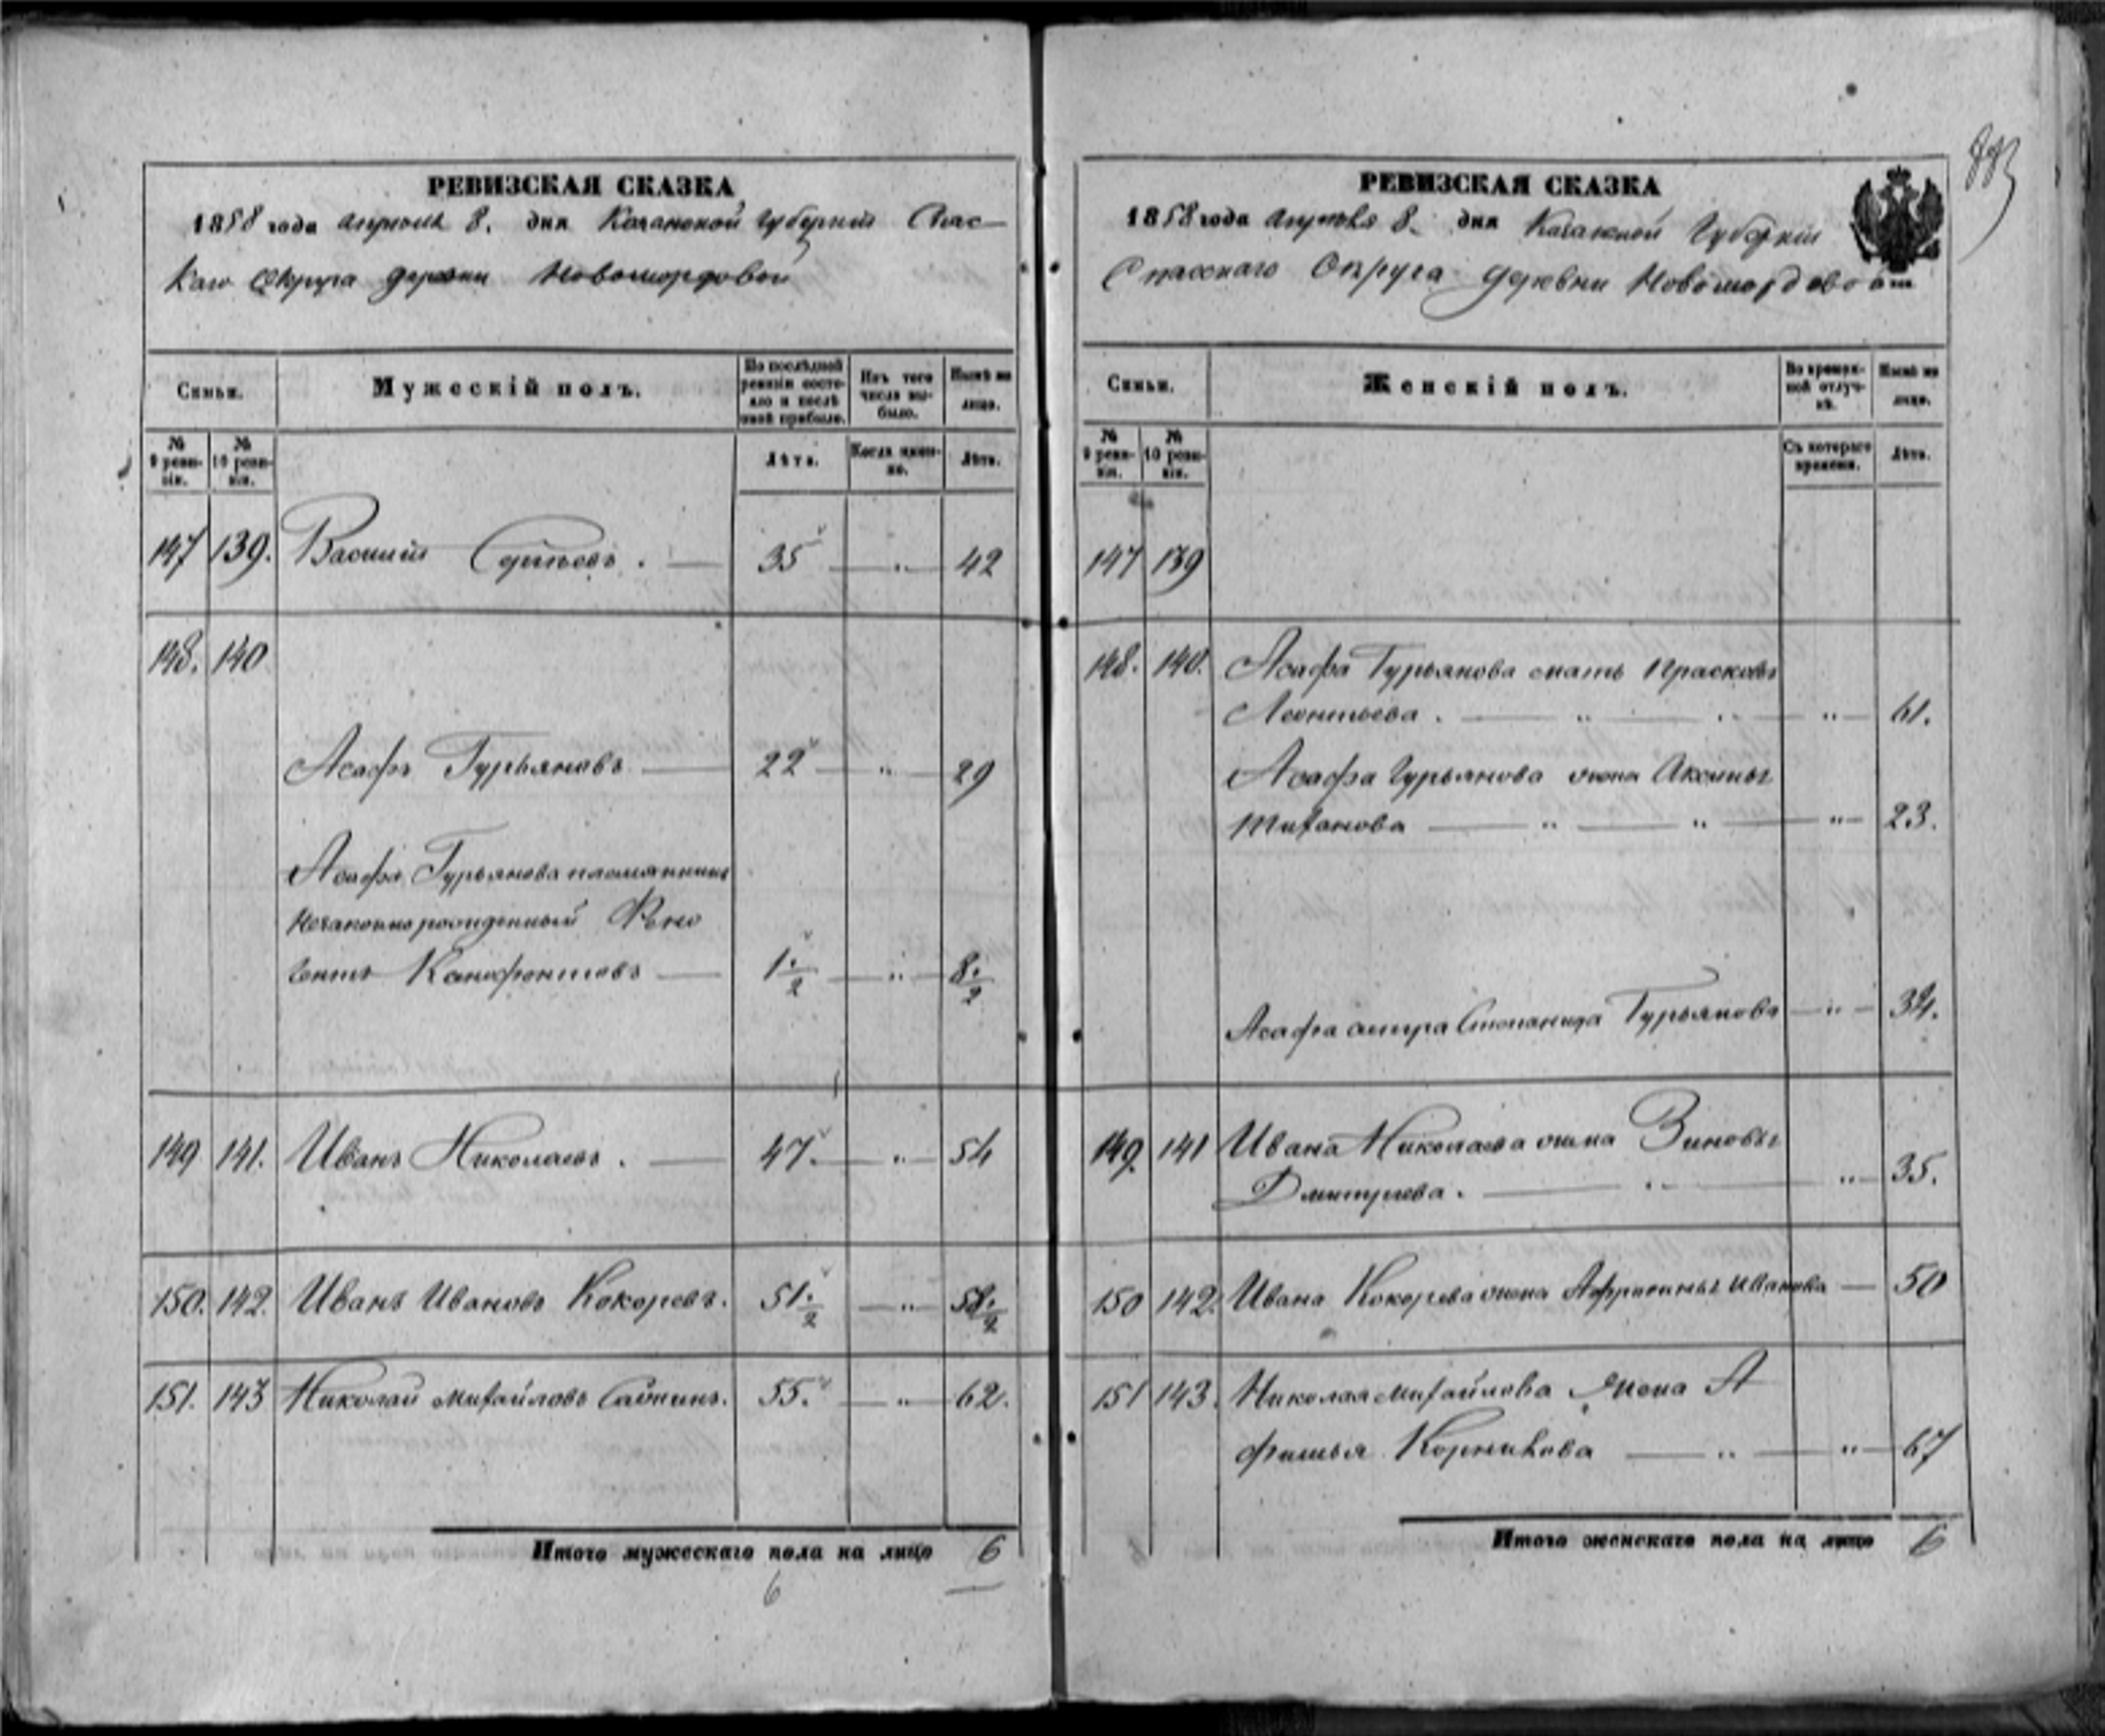 РЕВИЗСКАЯ СКАЗКА
1858 года апреля 8. дня Казанской губернии Спас-
каго Округа деревни Новомордовой
Семьи.
Мужескій полъ.
По послѣдней ревизіи состояло и послѣ оной прибыло.
Изъ того числа выбыло.
Нынѣ на лицо.
№ 9 ревизіи.
№ 10 ревизіи.
Лѣта.
Когда именно.
Лѣта.
147 139. Василий . — 35 — „ — 42
148. 140
Асафъ Гурьяновъ — 22 — „ — 29
Асафа Гурьянова племянникъ
незаконнорожденный
Ксенофонтовъ — 1 1/2 — „ — 8 1/2
149 141. Иванъ Николаевъ . — 47. — „ — 54
150. 142. Иванъ Ивановъ Кокоревъ. 51 1/2 — „ — 58 1/2
151. 143 Николай Михайловъ 55. — „ — 62.
Итого мужескаго пола на лицо 6
6
РЕВИЗСКАЯ СКАЗКА
1858 года Апреля 8. дня Казанской Губернии
Спасскаго Округа деревни Новомордовой
Семьи.
Женскій полъ.
Во временной отлучкѣ.
Нынѣ на лицо.
№ 9 ревизіи.
№ 10 ревизіи.
Съ котораго времени.
Лѣта.
147 139
148. 140. Асафа Гурьянова мать Прасковья
Леонтьева . — „ — „ — „ — 61.
Асафа Гурьянова жена Аксинья
Тиханова — „ — „ — „ — 23.
Асафа сестра Степанида Гурьянова — „ — 34.
149. 141 Ивана Николаева жена Зиновья
Дмитриева . — „ — „ — 35.
150 142. Ивана Кокорева жена Афросинья Иванова — 50
151 143. Николая Михайлова жена А
фимья — „ — „ — 67
Итого женскаго пола на лицо 6